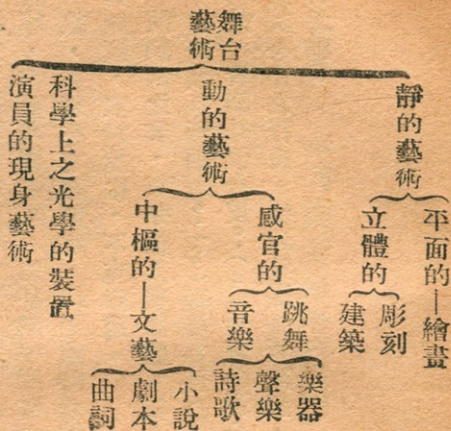 舞台
藝術
靜的藝術
平面的—繪畫
立體的
彫刻
建築
動的藝術
感官的
跳舞
音樂
樂器
聲樂
詩歌
中樞的—文藝
小說
劇本
曲詞
科學上之光學的裝置
演員的現身藝術